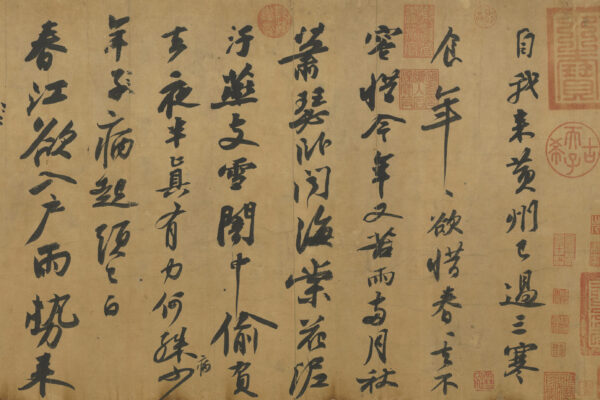 自我来黄州已過三寒
食年〻欲惜春〻去不
容惜今年又苦雨兩月秋
蕭瑟卧聞海棠花泥
汙燕支雪闇中偷負
去夜半真有力何殊病少
年子病起頭已白
春江欲入戶雨勢来
古希天子